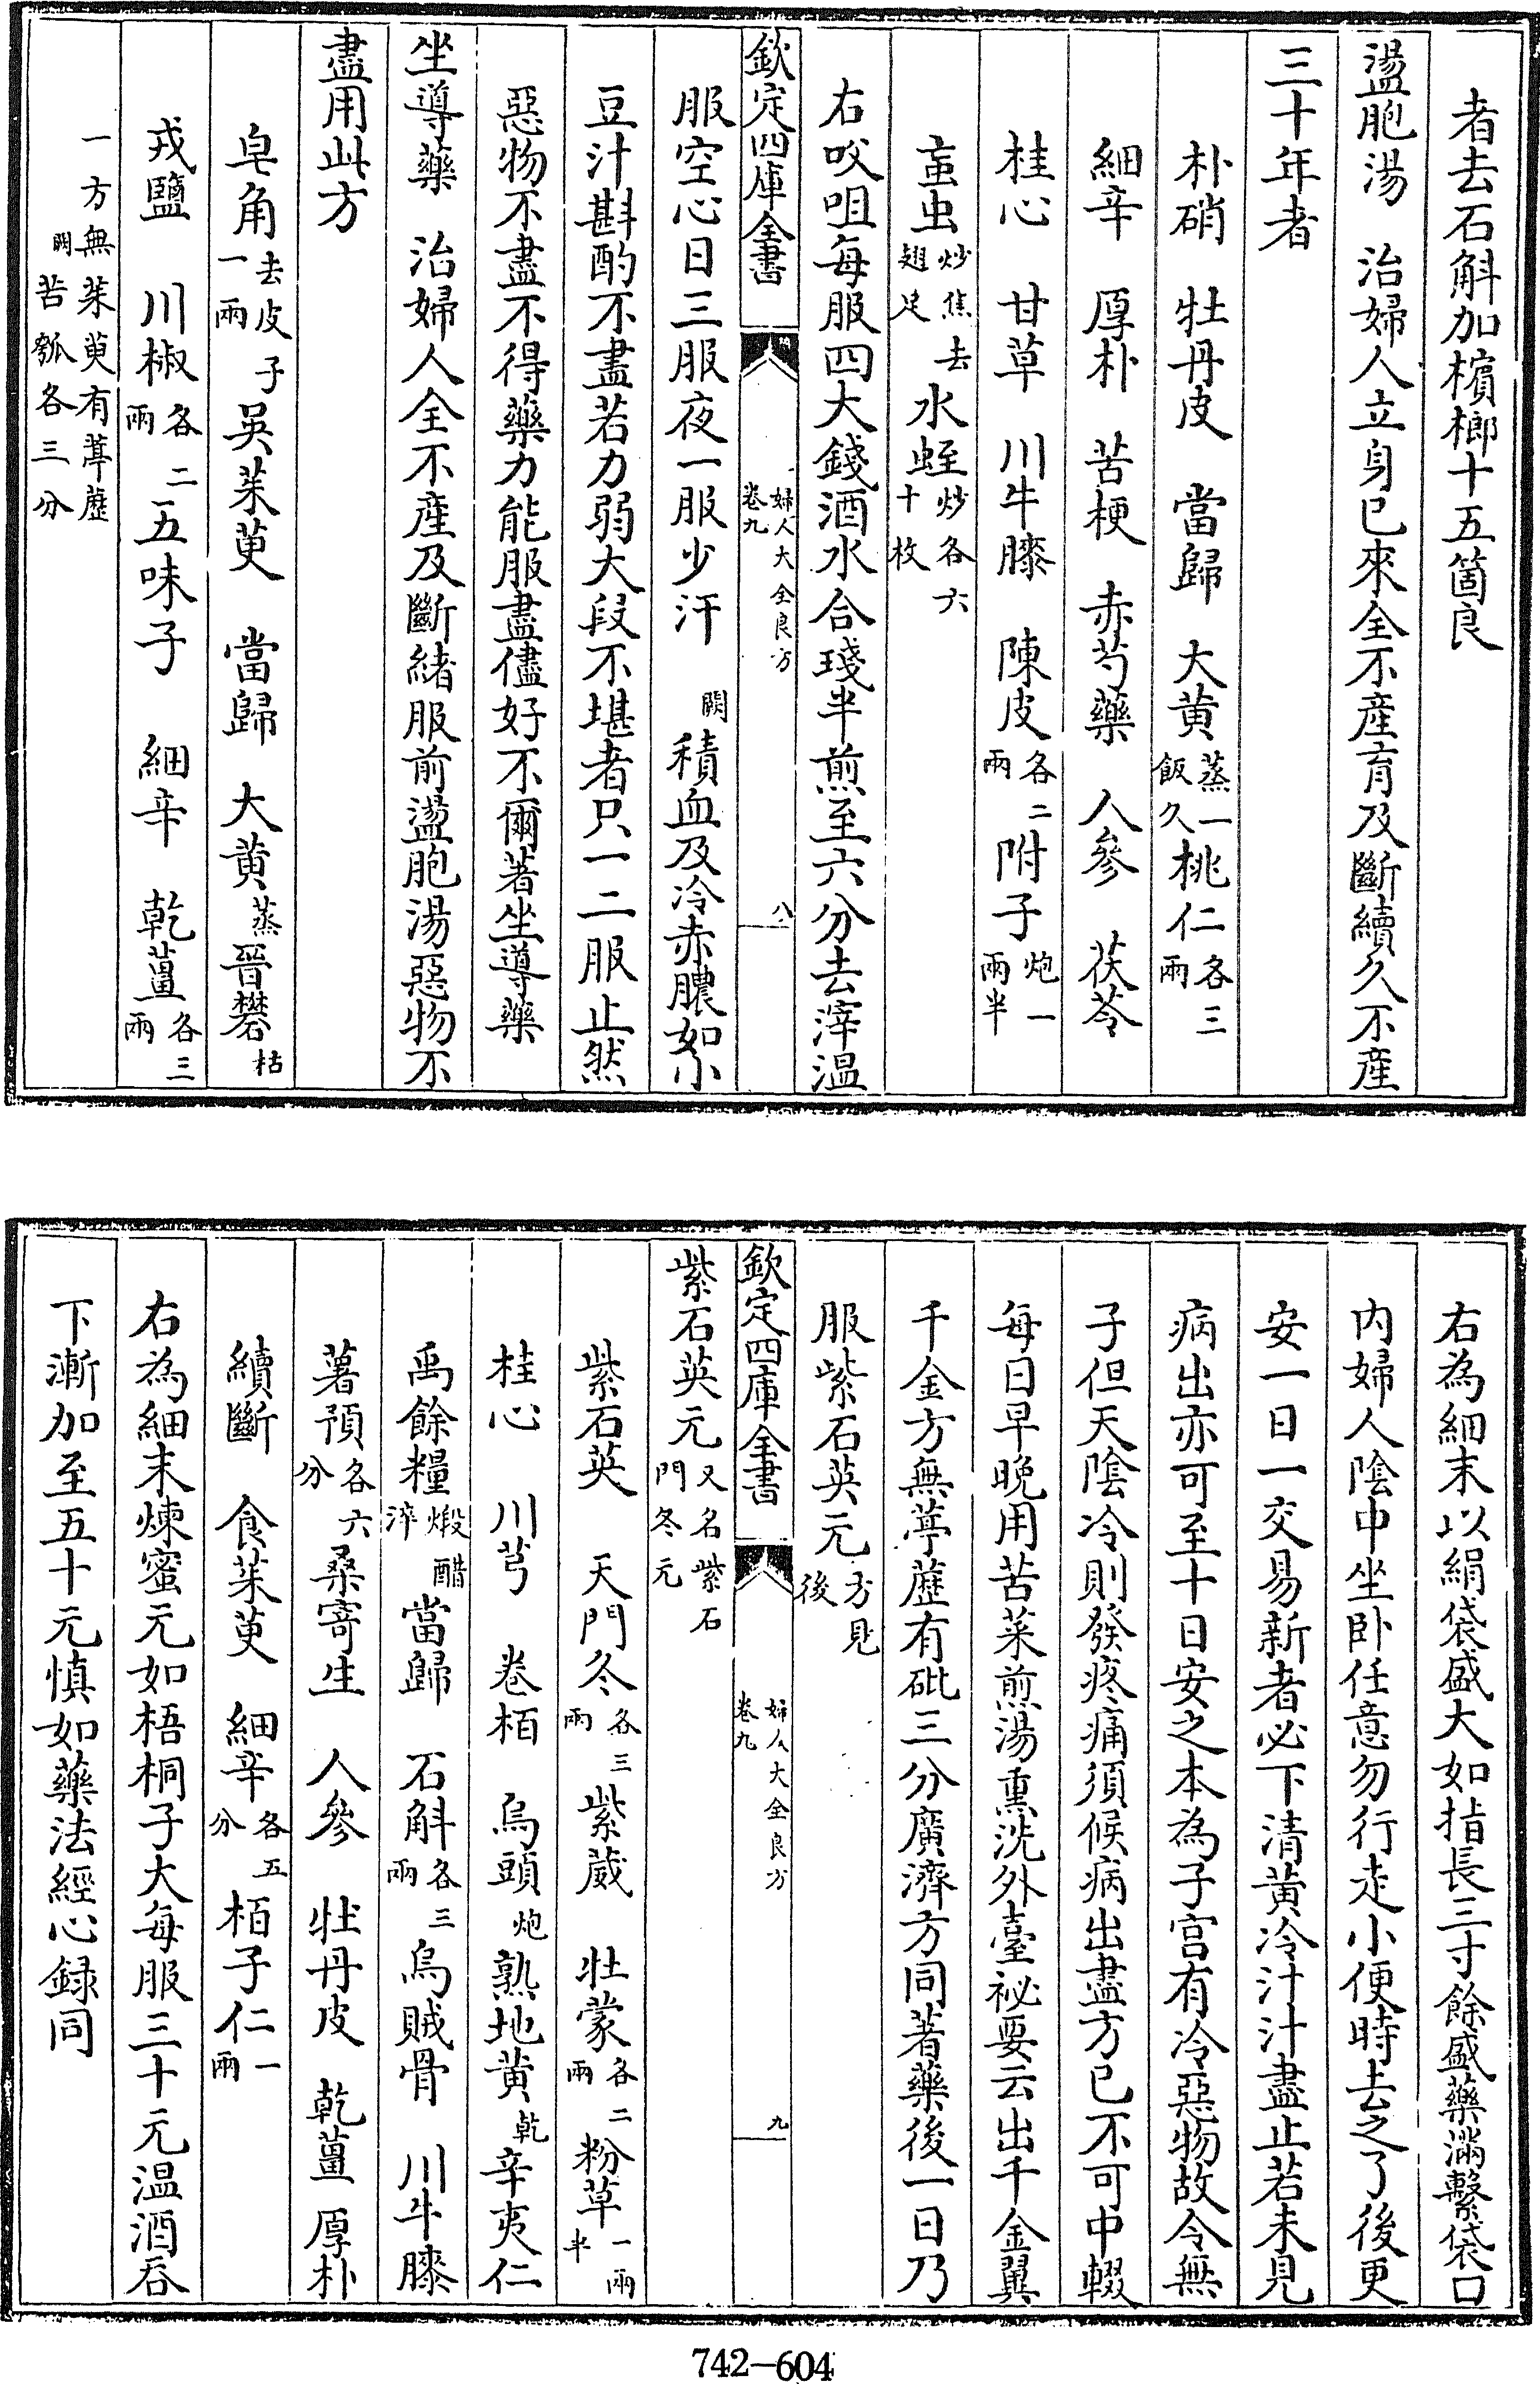 者去石斛加檳榔十五箇良
盪胞湯　治婦人立身已來全不產育及斷續久不產
三十年者
朴硝　牡丹皮　當歸　大黄蒸一飯久桃仁各三兩
細辛　厚朴　苦梗　赤芍藥　人參　茯苓
桂心　甘草　川牛膝　陳皮各二兩附子炮一兩半
䖟虫炒焦去翅足水蛭炒各六十枚
右㕮咀每服四大錢酒水合琖半煎至六分去滓温
欽定四庫全書　婦人大全良方卷九　八
服空心日三服夜一服少汗　闕積血及冷赤膿如小
豆汁斟酌不盡若力弱大段不堪者只一二服止然
惡物不盡不得藥力能服盡儘好不爾著坐導藥
坐導藥　治婦人全不產及斷緒服前盪胞湯惡物不
盡用此方
皂角去皮子一兩吳茱萸　當歸　大黄蒸晉礬枯
戎鹽　川椒各二兩五味子　細辛　乾薑各三兩
一方無茱萸有葶藶闕苦瓠各三分
右為細末以絹袋盛大如指長三寸餘盛藥滿繫袋口
内婦人陰中坐卧任意勿行走小便時去之了後更
安一日一交易新者必下清黄冷汁汁盡止若未見
病出亦可至十日安之本為子宫有冷惡物故令無
子但天陰冷則發疼痛須候病出盡方已不可中輟
每日早晚用苦菜煎湯熏洗外臺祕要云出千金翼
千金方無葶藶有砒三分廣濟方同著藥後一日乃
服紫石英元方見後
欽定四庫全書　婦人大全良方卷九　九
紫石英元又名紫石門冬元
紫石英　天門冬各三兩紫葳　牡蒙各二兩粉草一兩半
桂心　川芎　卷栢　烏頭炮熟地黄乾辛夷仁
禹餘糧煅醋淬當歸　石斛各三兩烏賊骨　川牛膝
薯預各六分桑寄生　人參　牡丹皮　乾薑　厚朴
續斷　食茱萸　細辛各五分栢子仁一兩
右為細末煉蜜元如梧桐子大每服三十元温酒吞
下漸加至五十元慎如藥法經心録同
742-604